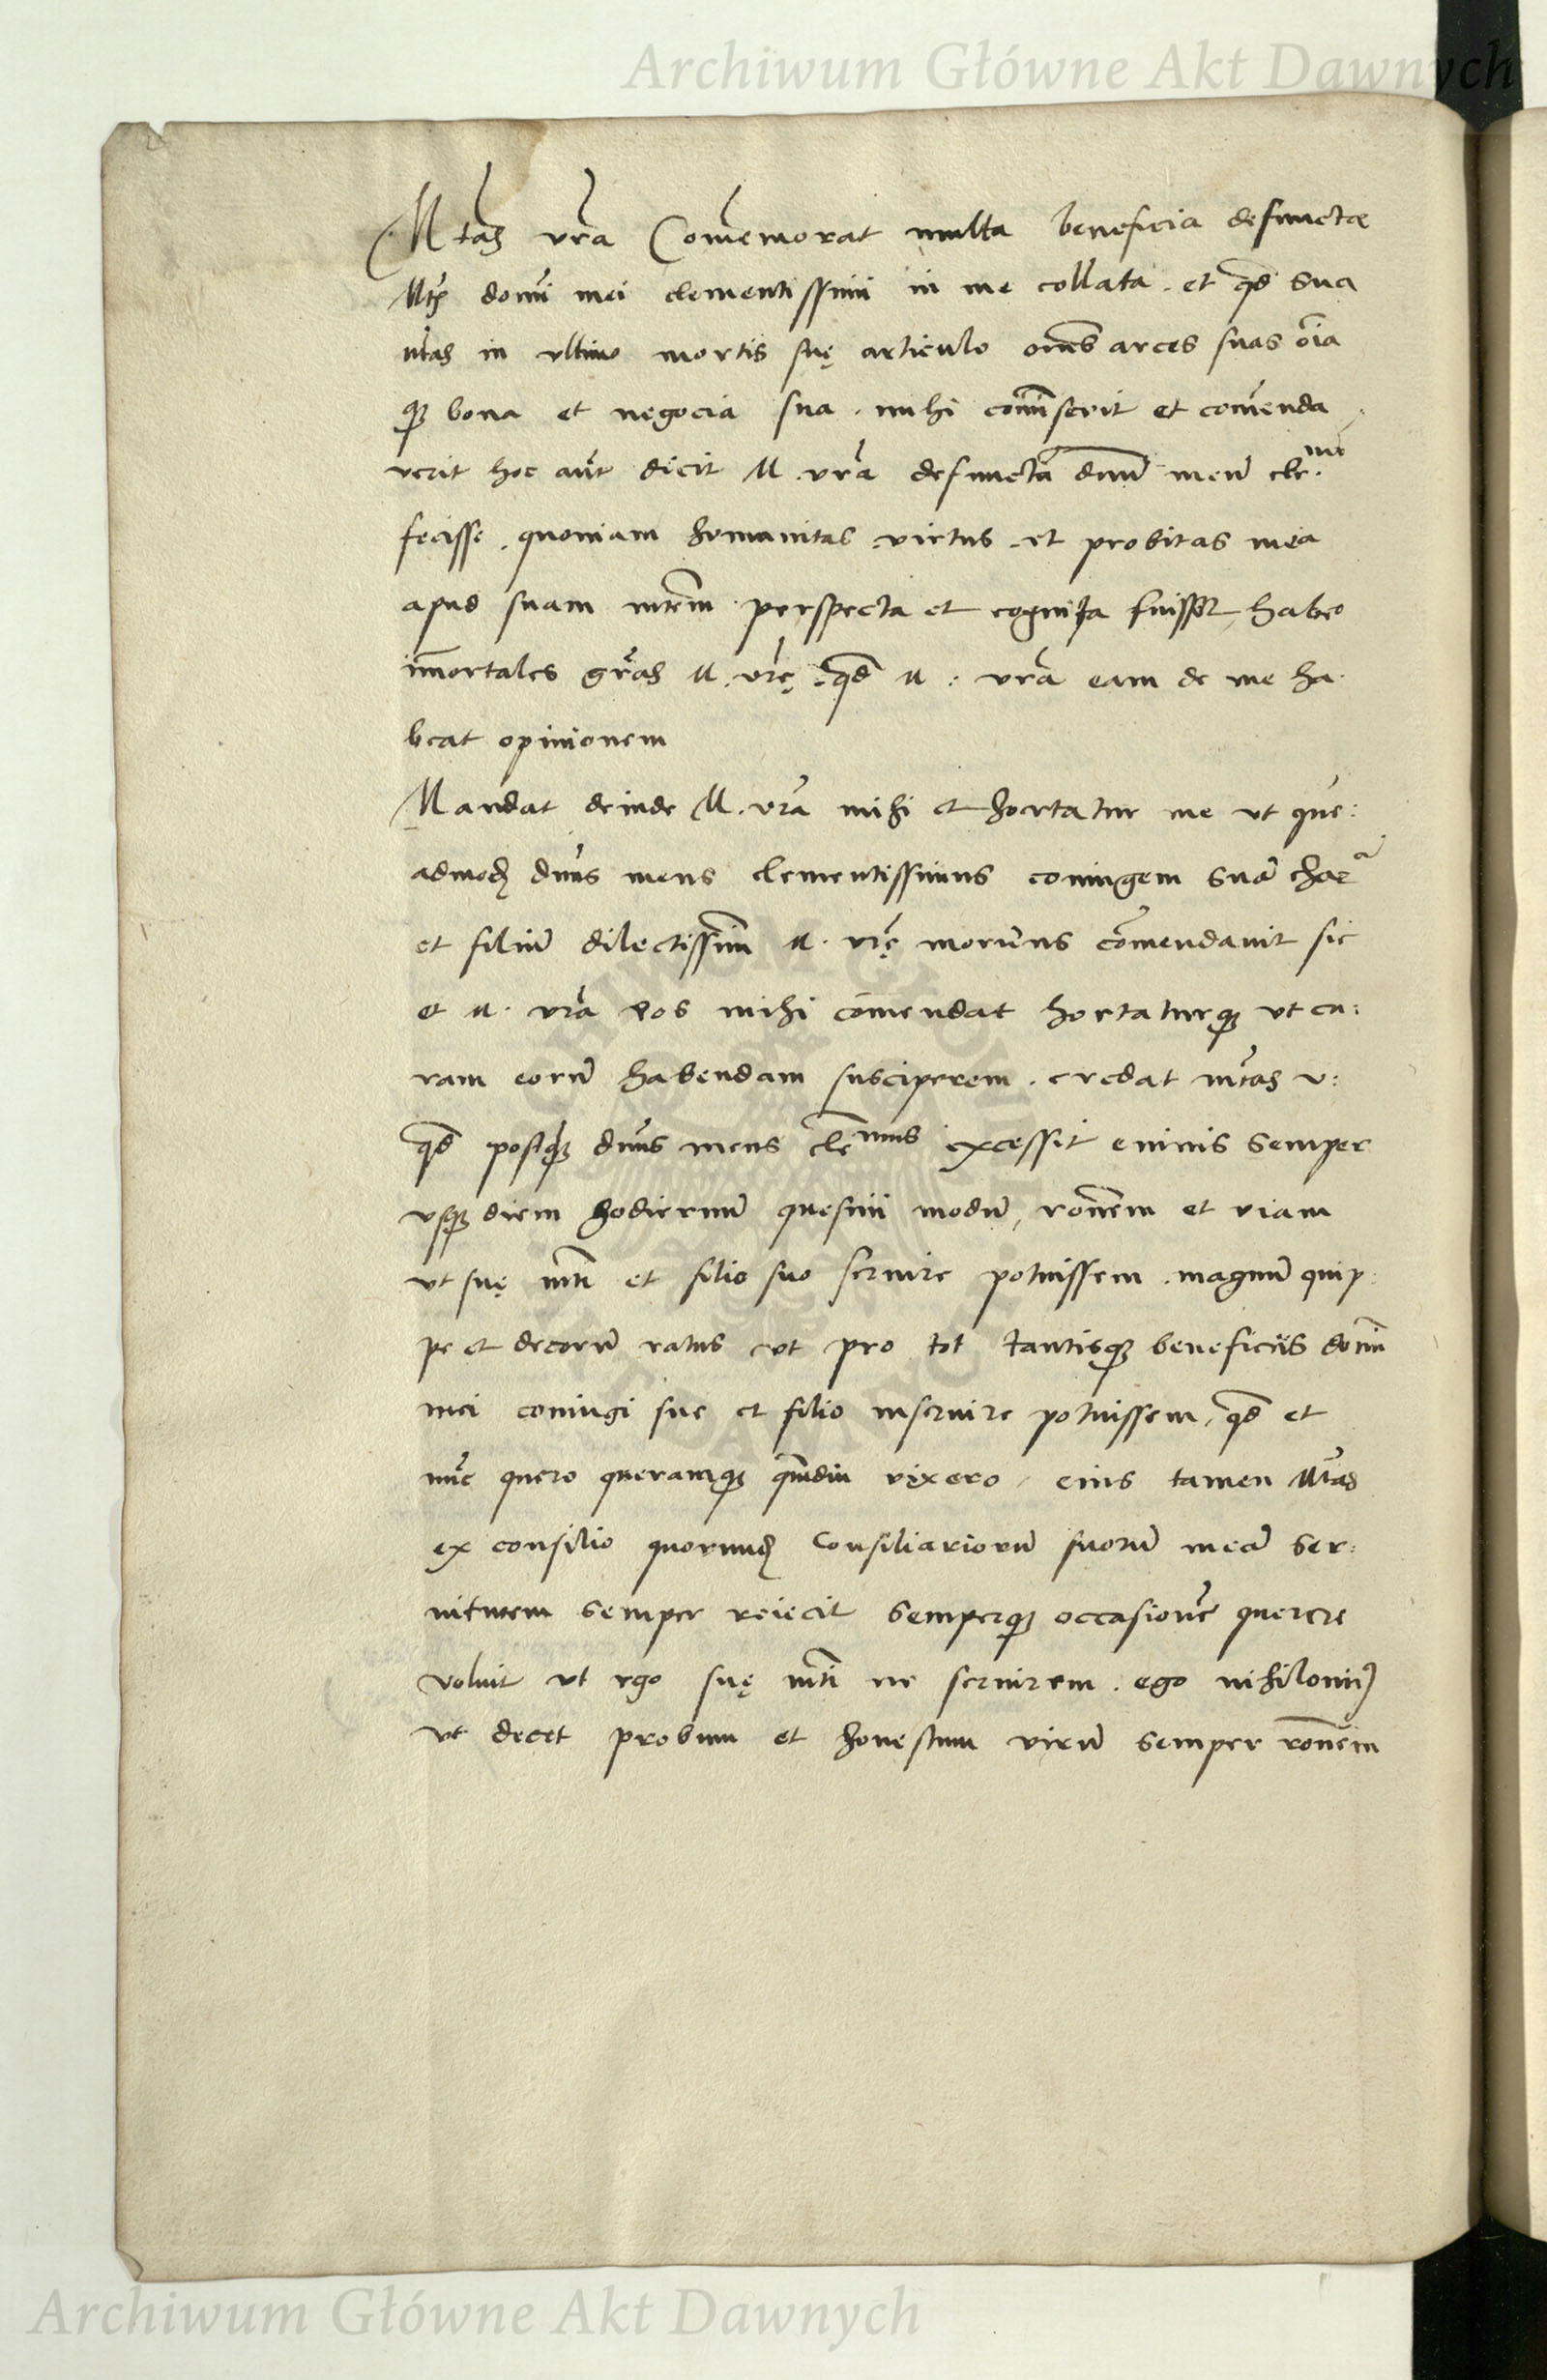 Archiwum Główne Akt Dawnych
Mtas vr̃a Com̃emorat multa beneficia defunctæ
Mtis domĩ mei clementissimi in me collata . et qd̃ sua
mtas in vltimo mortis suę articulo om̃es arces suas oĩa
q₃ bona et negocia sua . mihi com̃iserit et com̃enda
uerit hoc aũt dicit M . vr̃a defunctã dnũ meũ cle: mũ
fecisse . quoniam humanitas . virtus . et probitas mea
apud suam mtem̃ perspecta et cognita fuisset, habeo
im̃mortales gr̃as M . vr̃ę . qd̃ M : vr̃a eam de me ha
beat opinionem
Mandat deinde M . vr̃a mihi et hortatur me vt que:
admod₃ dñus meus clementissimus coniugem suã char̃ã
et filiũ dilectissim̃ M . vr̃ę moriẽns com̃endauit sic
et M . vr̃a eos mihi com̃endat hortaturq₃ vt cu:
ram eorũ habendam susciperem . credat mtas v:
qd̃ postq₃ dñus meus cle mus excessit e viuis semper
vsq₃ diem hodiernũ quesiui modũ, ron̄em et viam
vt suę mti et filio suo seruire potuissem . magnũ quip:
pe et decorũ ratus vt pro tot tantisq₃ beneficiis dom̃i
mei coniugi sue et filio inseruire potuissem, qd̃ et
nũc quero queramq₃ qm̃diu vixero, eius tamen Mtas
ex consilio quorund₃ Consiliariorũ suorũ meã ser:
uitutem semper reiecit semperq₃ occasionẽ querere
voluit vt ego suę mti ne seruirem . ego nihilomin9
vt decet probum et honestum virũ semper ron̄em
Archiwum Główne Akt Dawnych